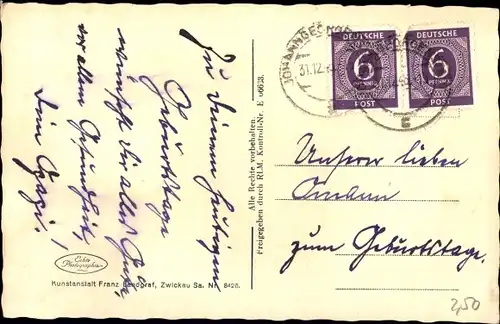 Zu Deinem heutigen
Geburtstage
wünscht Dir alles Gute,
vor allem Gesundheit,
Dein
Echte
Photographie
Kunstanstalt Franz Landgraf, Zwickau Sa. Nr. 8426.
Alle Rechte vorbehalten.
Freigegeben durch RLM. Kontroll-Nr. E 6663.
31.12.
DEUTSCHE
6
PFENNIG
POST
DEUTSCHE
6
PFENNIG
POST
Unserer lieben
zum Geburtstage.
2,50